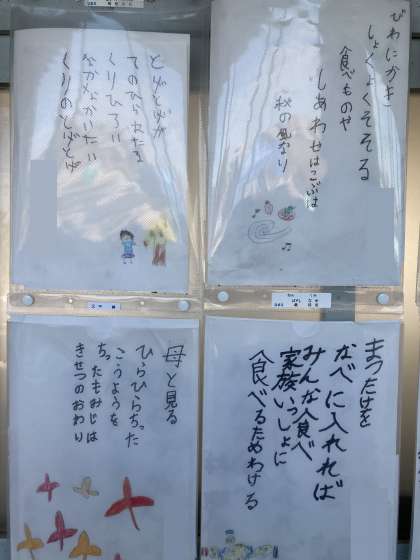 とげとげが
てのひらにたる
くりひろい
なかなかいたい
くりのとげとげ
びわにかき
しょくよくそそる
食べものや
しあわせはこぶは
秋の風なり
母と見る
ひらひらちった
こうようを
ちったもみじは
きせつのおわり
まつたけを
なべに入れれば
みんな食べ
家族いっしょに
食べるためわける